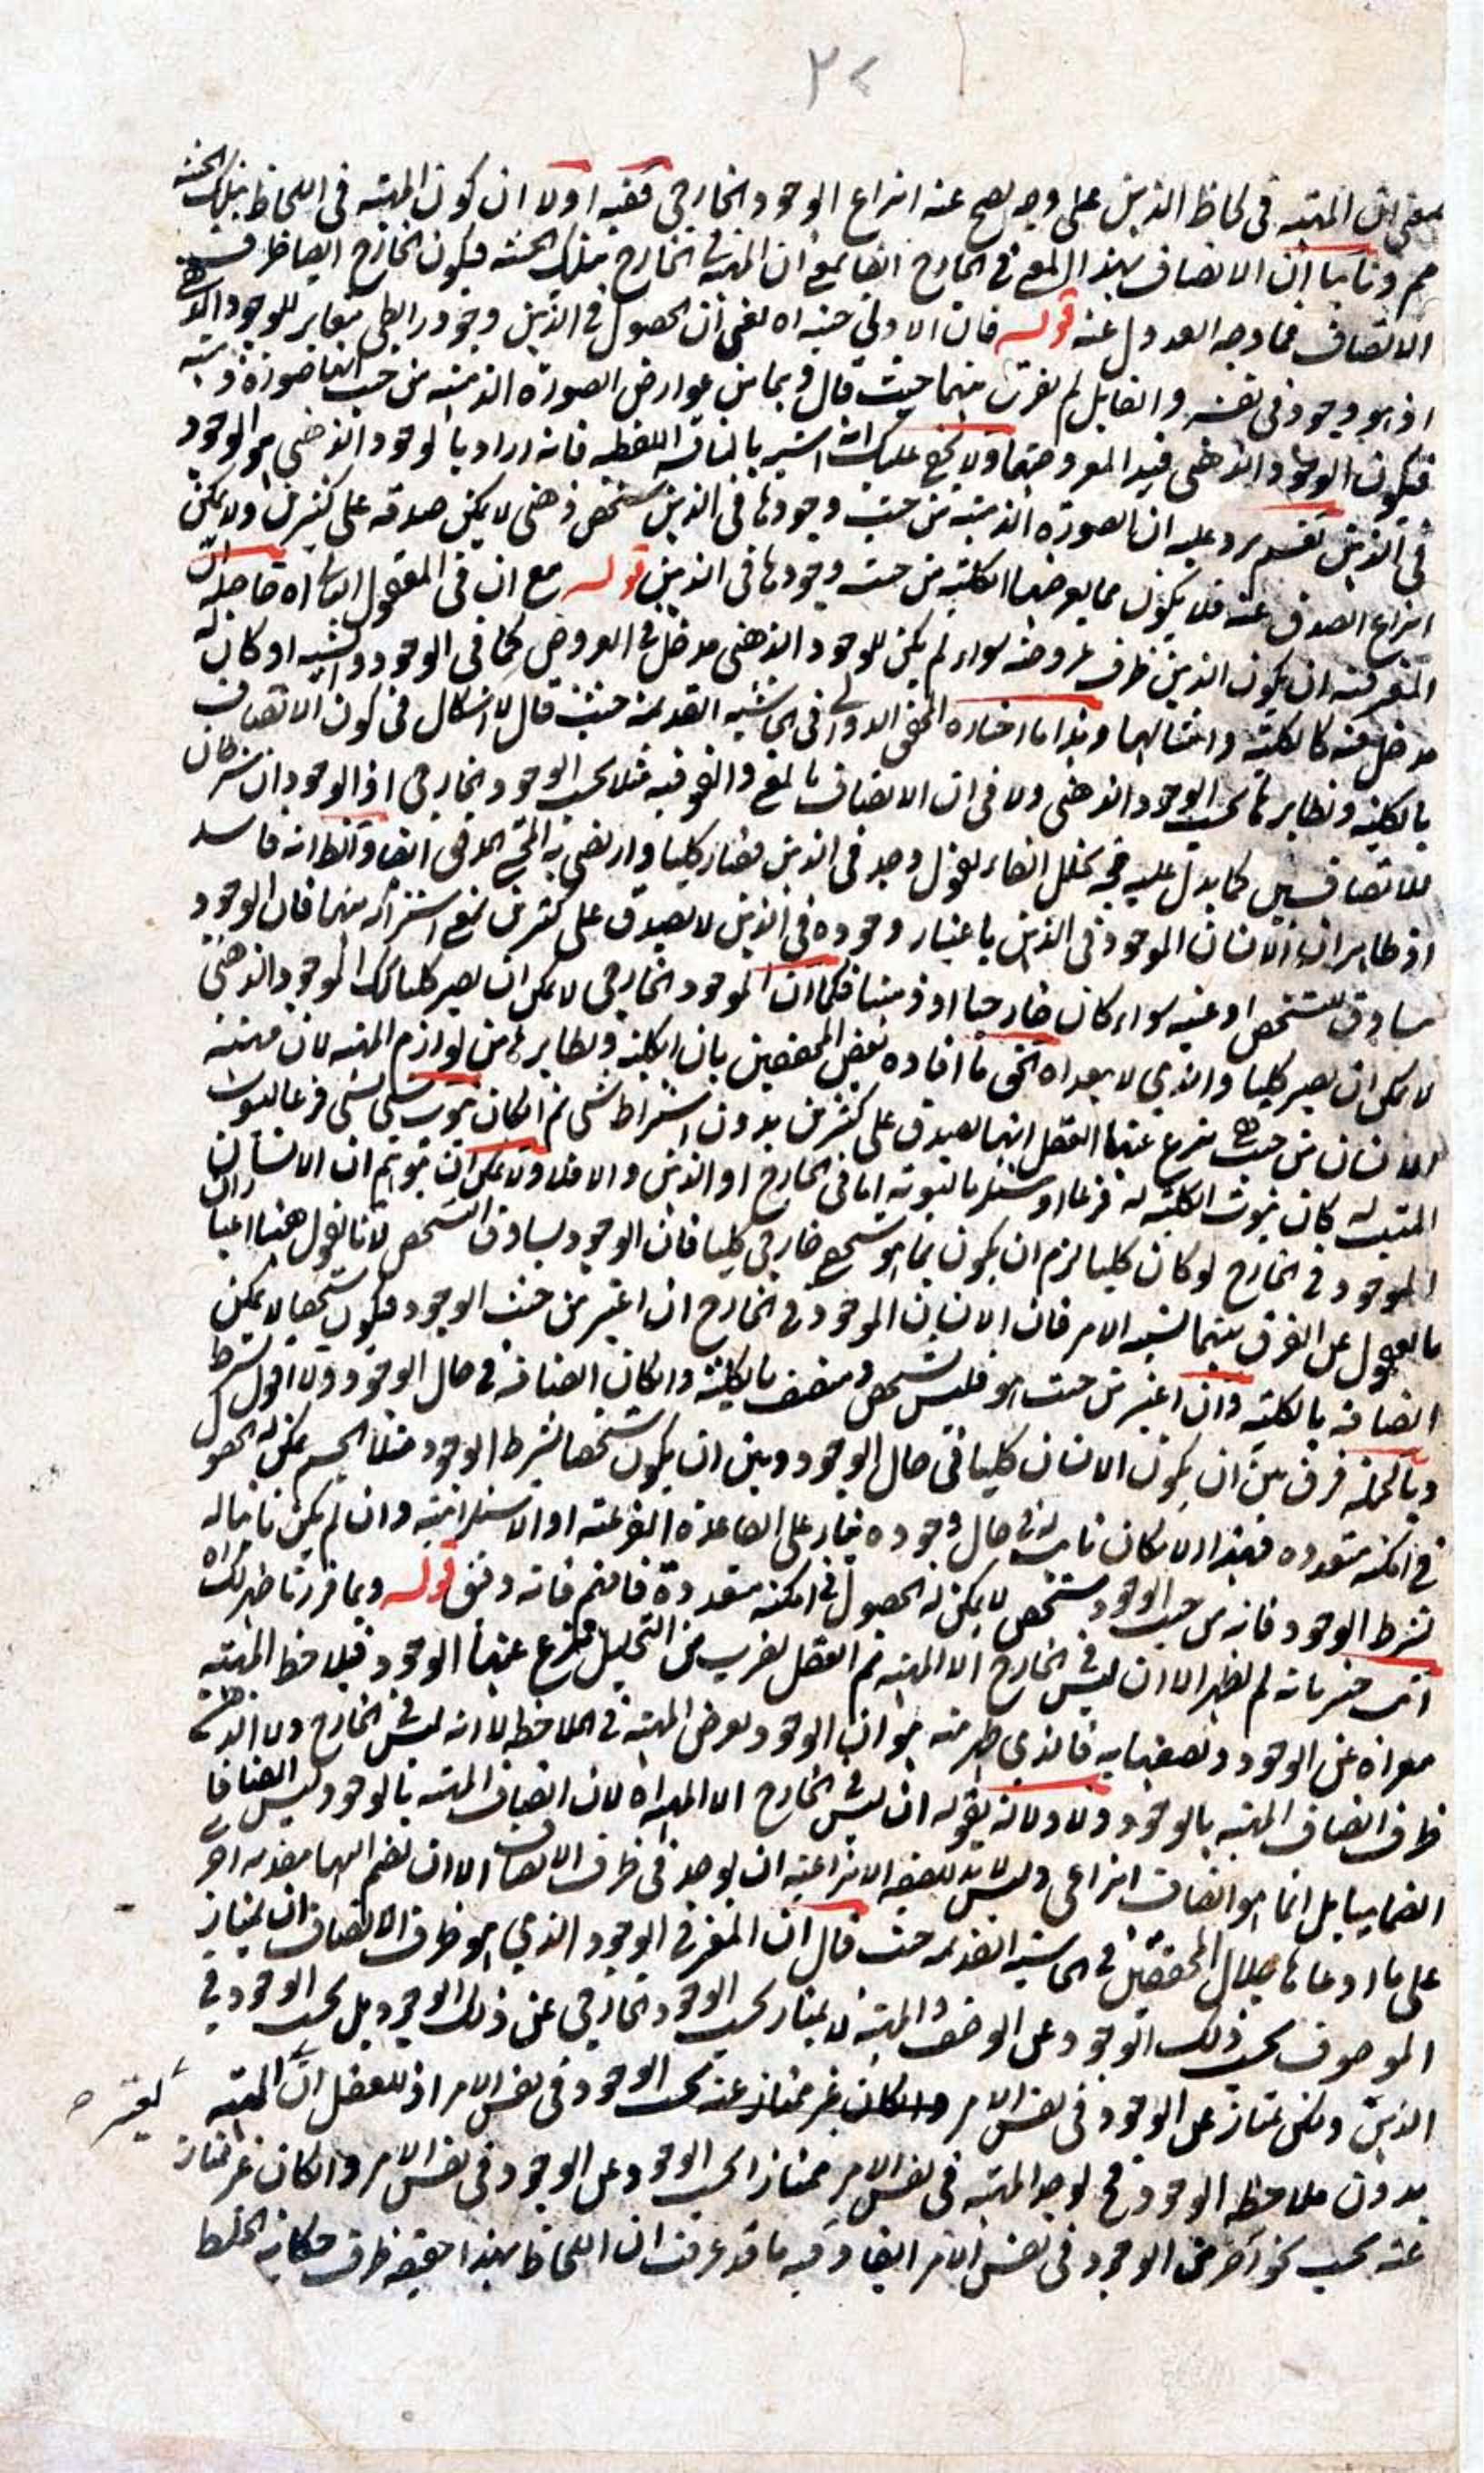 ٢٧
المهية في لحاظ الذهن على وجه يصح عنه انتزاع الوجود الخارجي ففيه اولا ان كون المهية في اللحاظ بتلك الحيثية
مم وثانيا ان الاتصاف بهذا المعنى في الخارج ايضا بمعنى ان المهية في الخارج بتلك الحيثية فيكون الخارج ايضا ظرف
الاتصاف فما وجه العدول عنه قوله فان الاولى حيثية اه يعنى ان الحصول في الذهن وجود رابطي مغاير للوجود الذهني
اذ هو وجود في نفسه والقايل لم يفرق بينهما حيث قال وبما من عوارض الصورة الذهنية من حيث انها صورة ذهنية
فيكون الوجود الذهني قيد المعروضها ولا يخفى عليك انه اشبه بالمناقشة اللفظية فانه اراد بالوجود الذهني هو الوجود
في الذهن نفسه يرد عليه ان الصورة الذهنية من حيث وجودها في الذهن شخص ذهني لا يمكن صدقه على كثيرين ولا يمكن
انتزاع الصدق عنه فلا يكون مما يعرضها الكلية من حيث وجودها في الذهن قوله مع ان في المعقول الثاني اه حاصله ان
المعتبر فيه ان يكون الذهن ظرف عروضه سواء لم يكن للوجود الذهني مدخل في العروض كما في الوجود والشيئية او كان له
مدخل فيه كالكلية وامثالها وهذا ما اختاره المحقق الدواني في الحاشية القديمة حيث قال لا اشكال في كون الاتصاف
بالكلية ونظايرها بحسب الوجود الذهني ولا في ان الاتصاف بالعمى والفوقية مثلا بحسب الوجود الخارجي اذ الوجودان شرطان
للاتصافين كما يدل عليه صحة تخلل الفاء بقول وجد في الذهن فصار كليا وارتضى به المحقق المدقق ايضا والظ انه فاسد
اذ ظاهر ان الانسان الموجود في الذهن باعتبار وجوده في الذهن لا يصدق على كثيرين بمعنى اشتراكه بينهما فان الوجود
مساوق للتشخص او عينه سواء كان خارجيا او ذهنيا فكما ان الموجود الخارجي لا يمكن ان يصير كليا كك الموجود الذهني
لا يمكن ان يصير كليا والذي لا يبعد اه الحق ما افاده بعض المحققين بان الكلية ونظايرها من لوازم المهية لان مهية
الانسان من حيث هي ينزع عنها العقل انها يصدق على كثيرين بدون اشتراط شئ نعم ان كان ثبوت شئ لشئ فرعا لثبوت
المثبت له كان ثبوت الكلية له فرعا او مستلزما لثبوته اما في الخارج او الذهن والا فلا ولا يمكن ان يتوهم ان الانسان
الموجود في الخارج لو كان كليا لزم ان يكون بما هو شخص خارجي كليا فان الوجود يساوق التشخص لانا نقول هنا اعتباران
بالعقول عن الفرق بينهما يشتبه الامر فان الانسان الموجود في الخارج ان اعتبر من حيث الوجود فيكون شخصا لا يمكن
اتصافه بالكلية وان اعتبر من حيث هو فليس بشخص ومتصف بالكلية وان كان اتصافه في حال الوجود ولا اقول بشرط
وبالجملة فرق بين ان يكون الانسان كليا في حال الوجود وبين ان يكون شخصا بشرط الوجود مثلا الجسم يمكن له الحصول
في امكنة متعددة فهذا الامكان ثابت له في حال وجوده بناء على القاعدة الفرعية او الاستلزامية وان لم يكن ثابتا له
بشرط الوجود فانه من حيث الوجود شخص لا يمكن له الحصول في امكنة متعددة فافهم فانه دقيق قوله وبما قررنا ظهر لك اه
انت خبير بانه لم يظهر الا ان ليس في الخارج الا المهية ثم العقل بضرب من التحليل ينتزع عنها الوجود فيلاحظ المهية
معراة عن الوجود ويصفها به فالذي ظهر منه هو ان الوجود يعرض المهية في الملاحظة لا انه ليس في الخارج ولا الذهن
ظرف اتصاف المهية بالوجود ولا دلالة بقوله ان ليس في الخارج الا المهية اه لان اتصاف المهية بالوجود ليس اتصافا
انضماميا بل انما هو اتصاف انتزاعي وليس لا بد للصفة الانتزاعية ان يوجد في ظرف الاتصاف الا ان يضم اليها مقدمه اخرى
على ما ادعاها جلال المحققين في الحاشية القديمة حيث قال ان المعتبر في الوجود الذي هو ظرف الاتصاف ان يمتاز
الموصوف بحسب ذلك الوجود عن الوصف والمهية لا يمتاز بحسب الوجود الخارجي عن ذلك الوجود بل بحسب الوجود في
الذهن ولكن يمتاز عن الوجود في نفس الامر وان كان غير ممتاز عنه بحسب الوجود في نفس الامر اذ للعقل ان المهية
يعتبر
بدون ملاحظة الوجود فح يوجد المهية في نفس الامر ممتازا بحسب الوجود عن الوجود في نفس الامر وان كان غير ممتاز
عنه بحسب نحو آخر من الوجود في نفس الامر ايضا وفيه ما قد عرفت ان اللحاظ بهذا حقيقة ظرف حكاية الخلط